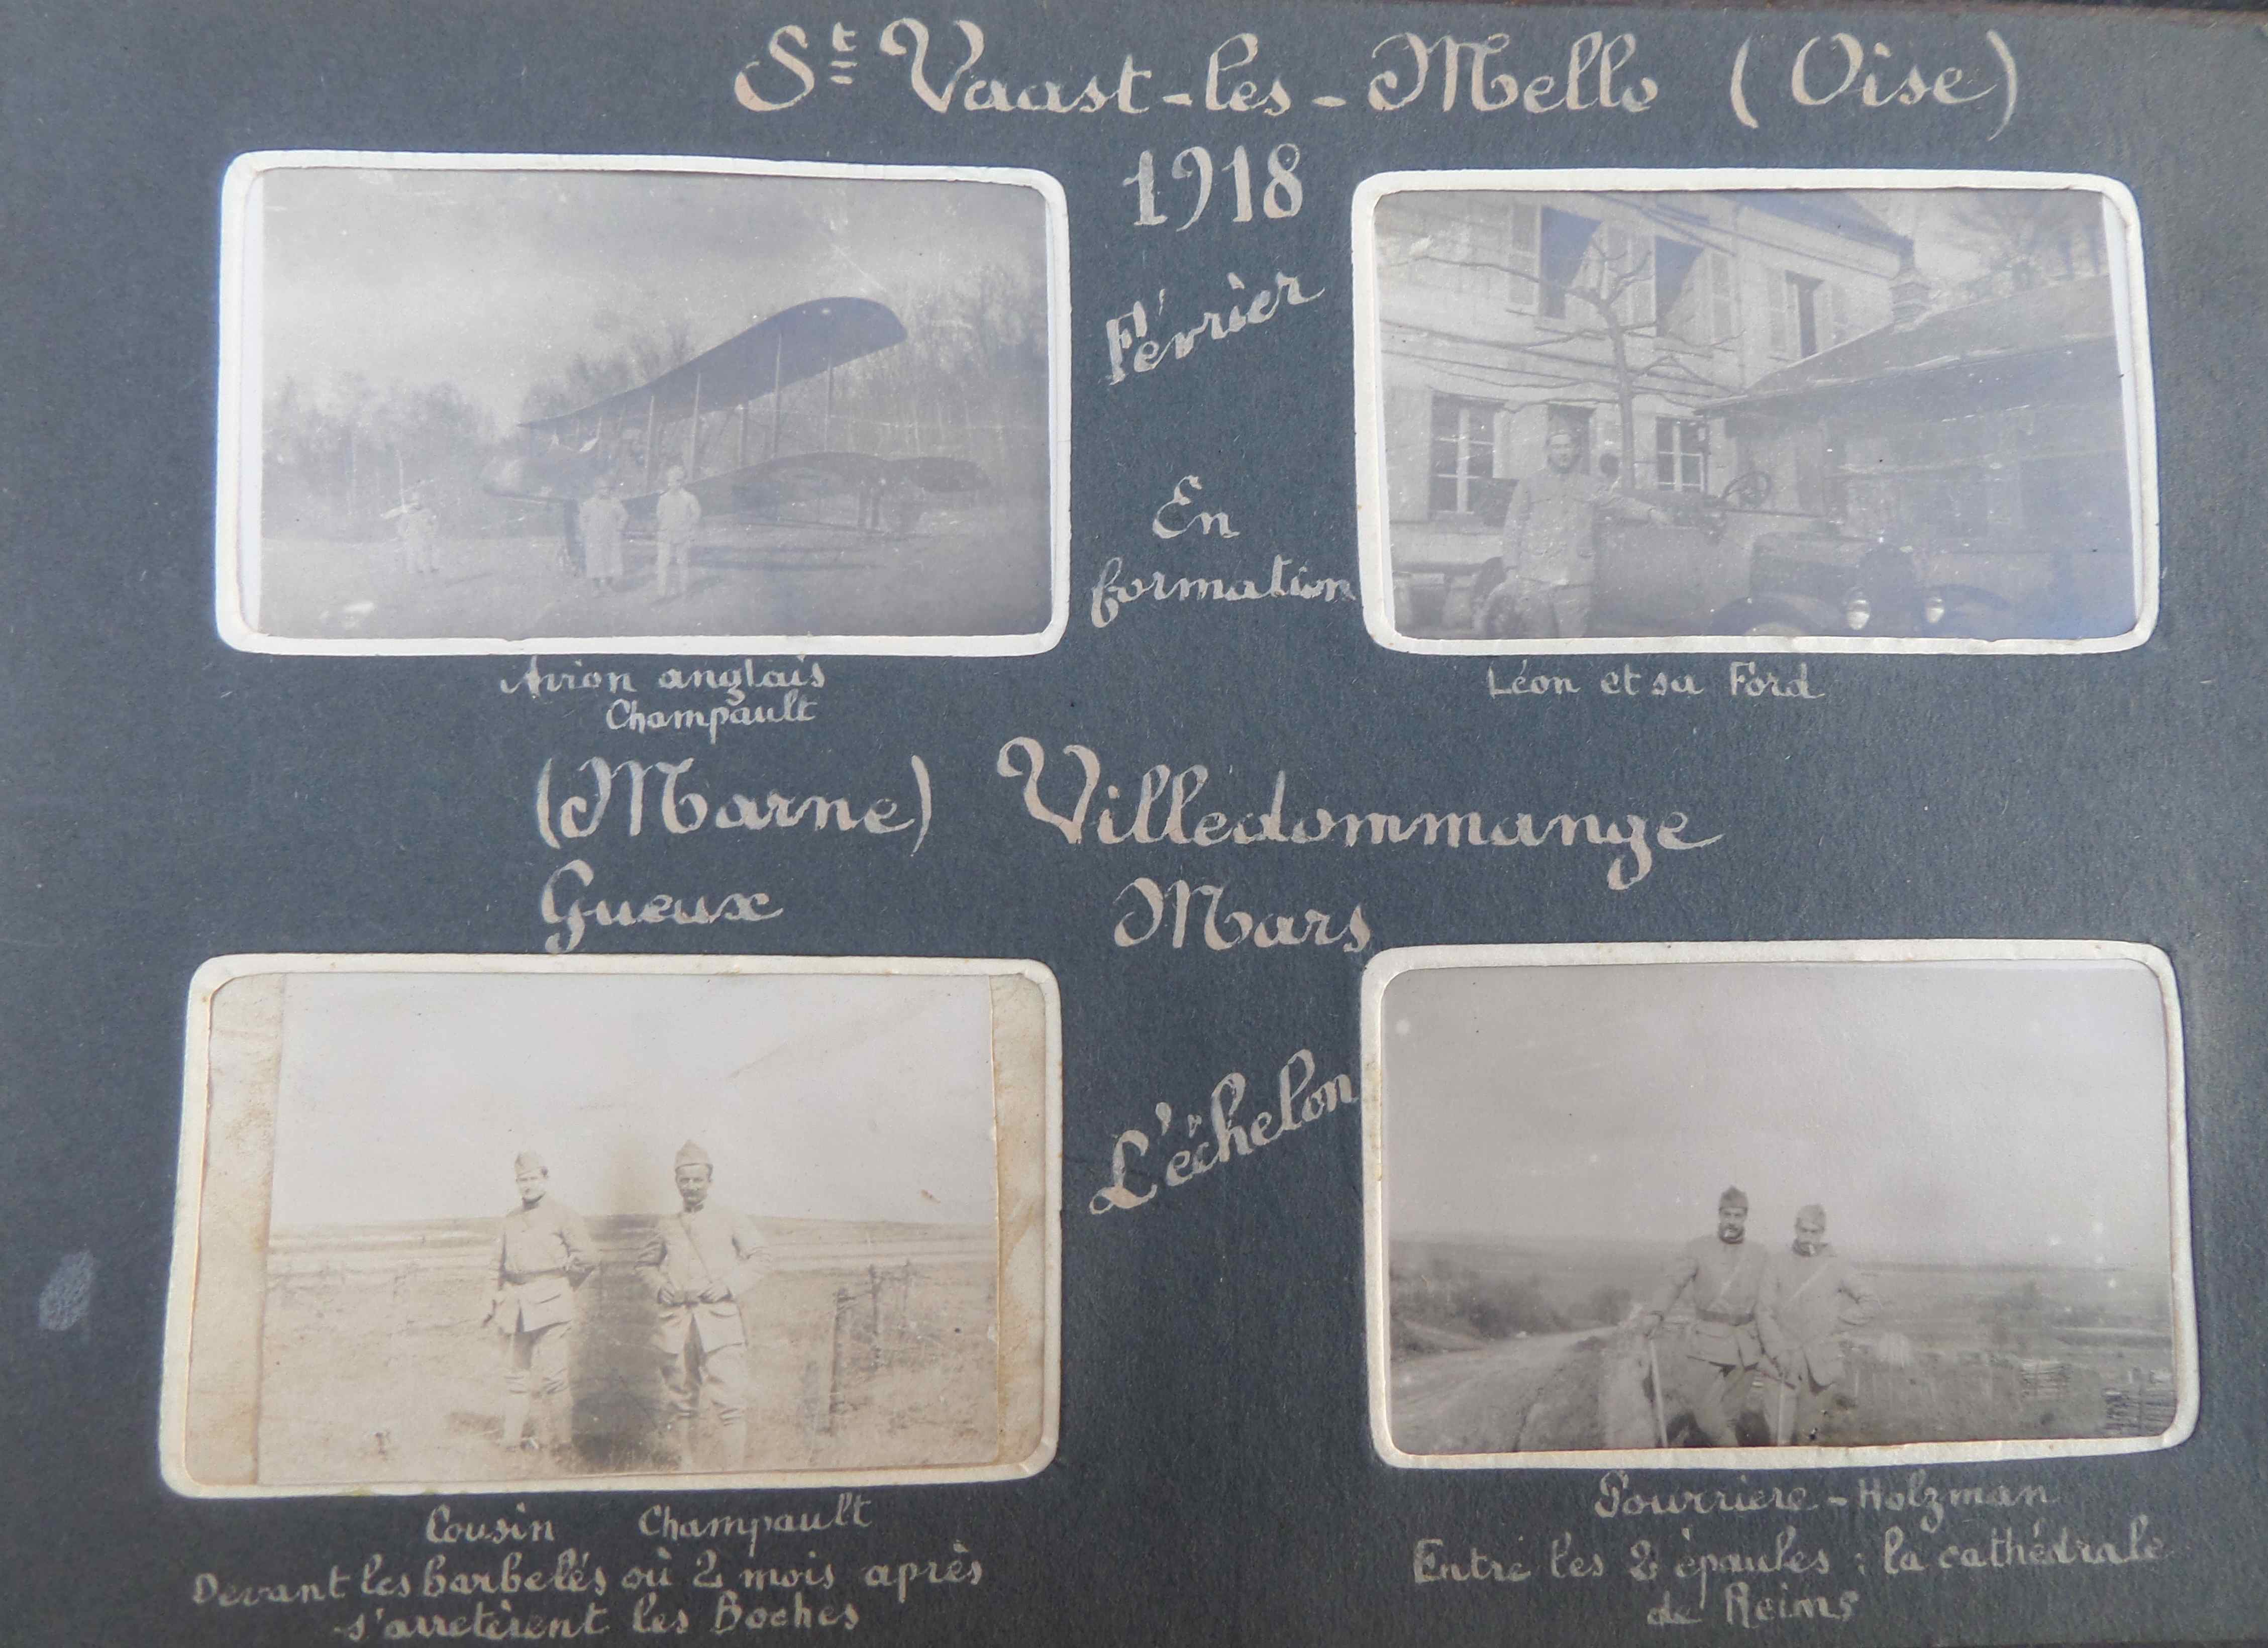 St Vaast-les-Mello (Oise)
1918
Février
En
formation
Avion anglais
Champault
Léon et sa Ford
(Marne) Villedommange
Gueux
Mars
L'échelon
Cousin Champault
Devant les barbelés où 2 mois après
s'arretèrent les Boches
Pourriere - Holzman
Entre les 2 épaules : la cathédrale
de Reims